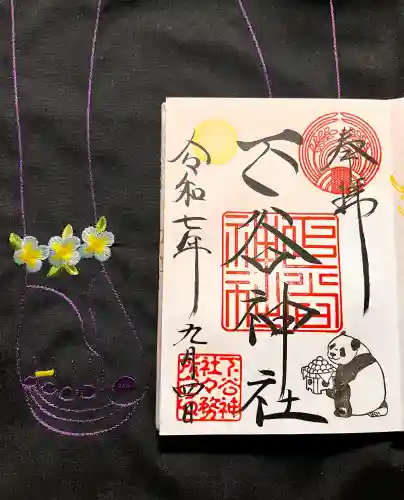 奉拝
下谷神社
令和七年
九月四日
下谷神
社々務
所印